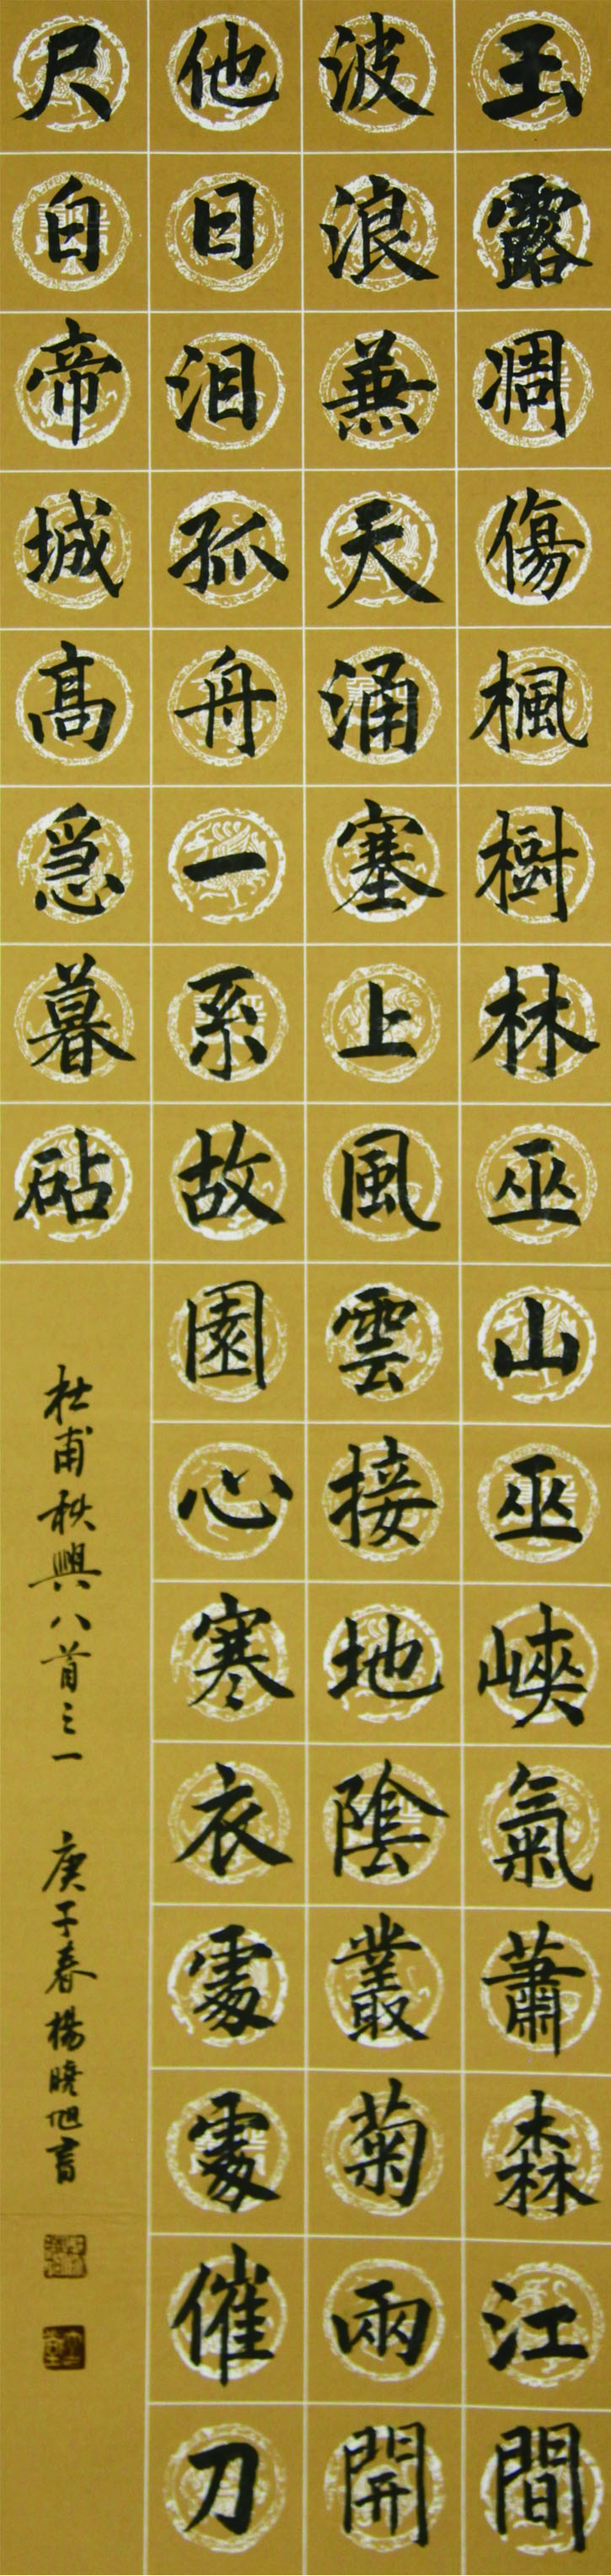 玉露凋傷楓樹林巫山巫峽氣蕭森江間
波浪蕪天涌塞上風雲接地陰叢菊兩開
他日泪孤舟一系故園心寒衣處處催刀
尺白帝城高急暮砧
杜甫秋興八首之一 庚子春楊曉旭書